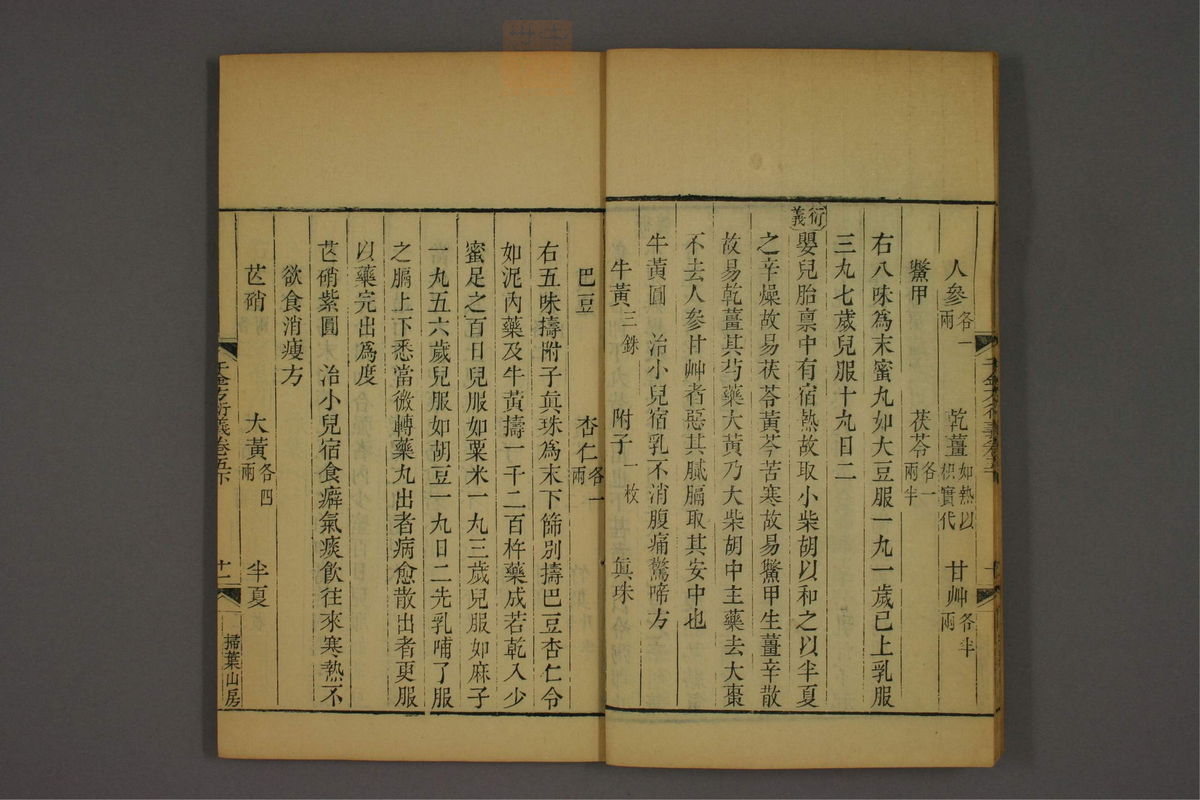 人參各一兩　乾薑如熱以枳實代　甘艸各半兩
鱉甲　茯苓各一兩半
右八味爲末蜜丸如大豆服一丸一歲已上乳服
三丸七歲兒服十丸日二
衍義嬰兒胎禀中有宿熱故取小柴胡以和之以半夏
之辛燥故易茯苓黃芩苦寒故易鱉甲生薑辛散
故易乾薑其芍藥大黃乃大柴胡中主藥去大棗
不去人參甘艸者惡其膩膈取其安中也
牛黃圓　治小兒宿乳不消腹痛驚啼方
牛黃三銖　附子一枚　眞珠
巴豆　杏仁各一兩
右五味擣附子眞珠爲末下篩別擣巴豆杏仁令
如泥內藥及牛黃擣一千二百杵藥成若乾入少
蜜足之百日兒服如粟米一丸三歲兒服如麻子
一丸五六歲兒服如胡豆一丸日二先乳哺了服
之膈上下悉當微轉藥丸出者病愈散出者更服
以藥完出爲度
芒硝紫圓　治小兒宿食癖氣痰飲往來寒熱不
欲食消瘦方
芒硝　大黃各四兩　半夏
千金方衍義卷五下
十一
掃葉山房